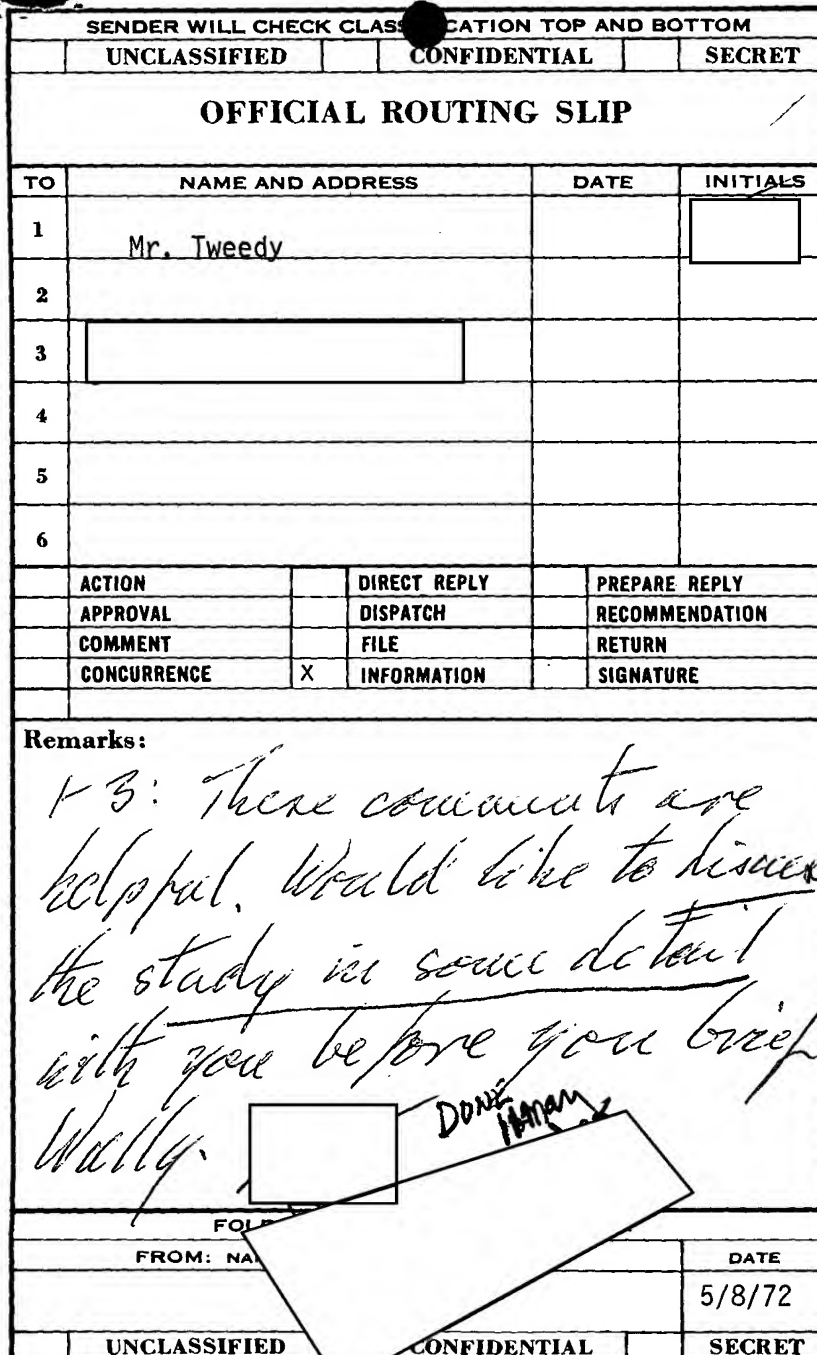 SENDER WILL CHECK CLASS CATION TOP AND BOTTOM
UNCLASSIFIED CONFIDENTIAL SECRET
OFFICIAL ROUTING SLIP
TO NAME AND ADDRESS DATE INITIALS
1 Mr. Tweedy
2
3
4
5
6
ACTION DIRECT REPLY PREPARE REPLY
APPROVAL DISPATCH RECOMMENDATION
COMMENT FILE RETURN
CONCURRENCE X INFORMATION SIGNATURE
Remarks:
1-3: These comments are
helpful. Would like to discuss
the study in some detail
with you before you brief
Wally.
DONE
11 May
FOLD
FROM: NA DATE
5/8/72
UNCLASSIFIED CONFIDENTIAL SECRET